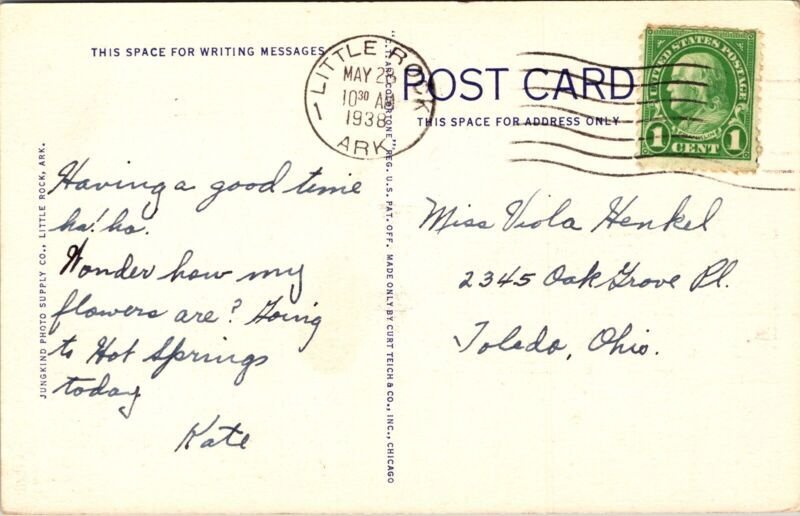 THIS SPACE FOR WRITING MESSAGES
LITTLE ROCK
MAY 2
10³⁰ AM
1938
ARK
POST CARD
THIS SPACE FOR ADDRESS ONLY
UNITED STATES POSTAGE
FRANKLIN
1 CENT 1
JUNGKIND PHOTO SUPPLY CO., LITTLE ROCK, ARK.
"C.T. ART-COLORTONE" REG. U.S. PAT. OFF. MADE ONLY BY CURT TEICH & CO., INC., CHICAGO
Having a good time
ha! ha.
Wonder how my
flowers are? Going
to Hot Springs
today
Kate
Miss Viola Henkel
2345 Oak Grove Pl.
Toledo, Ohio.